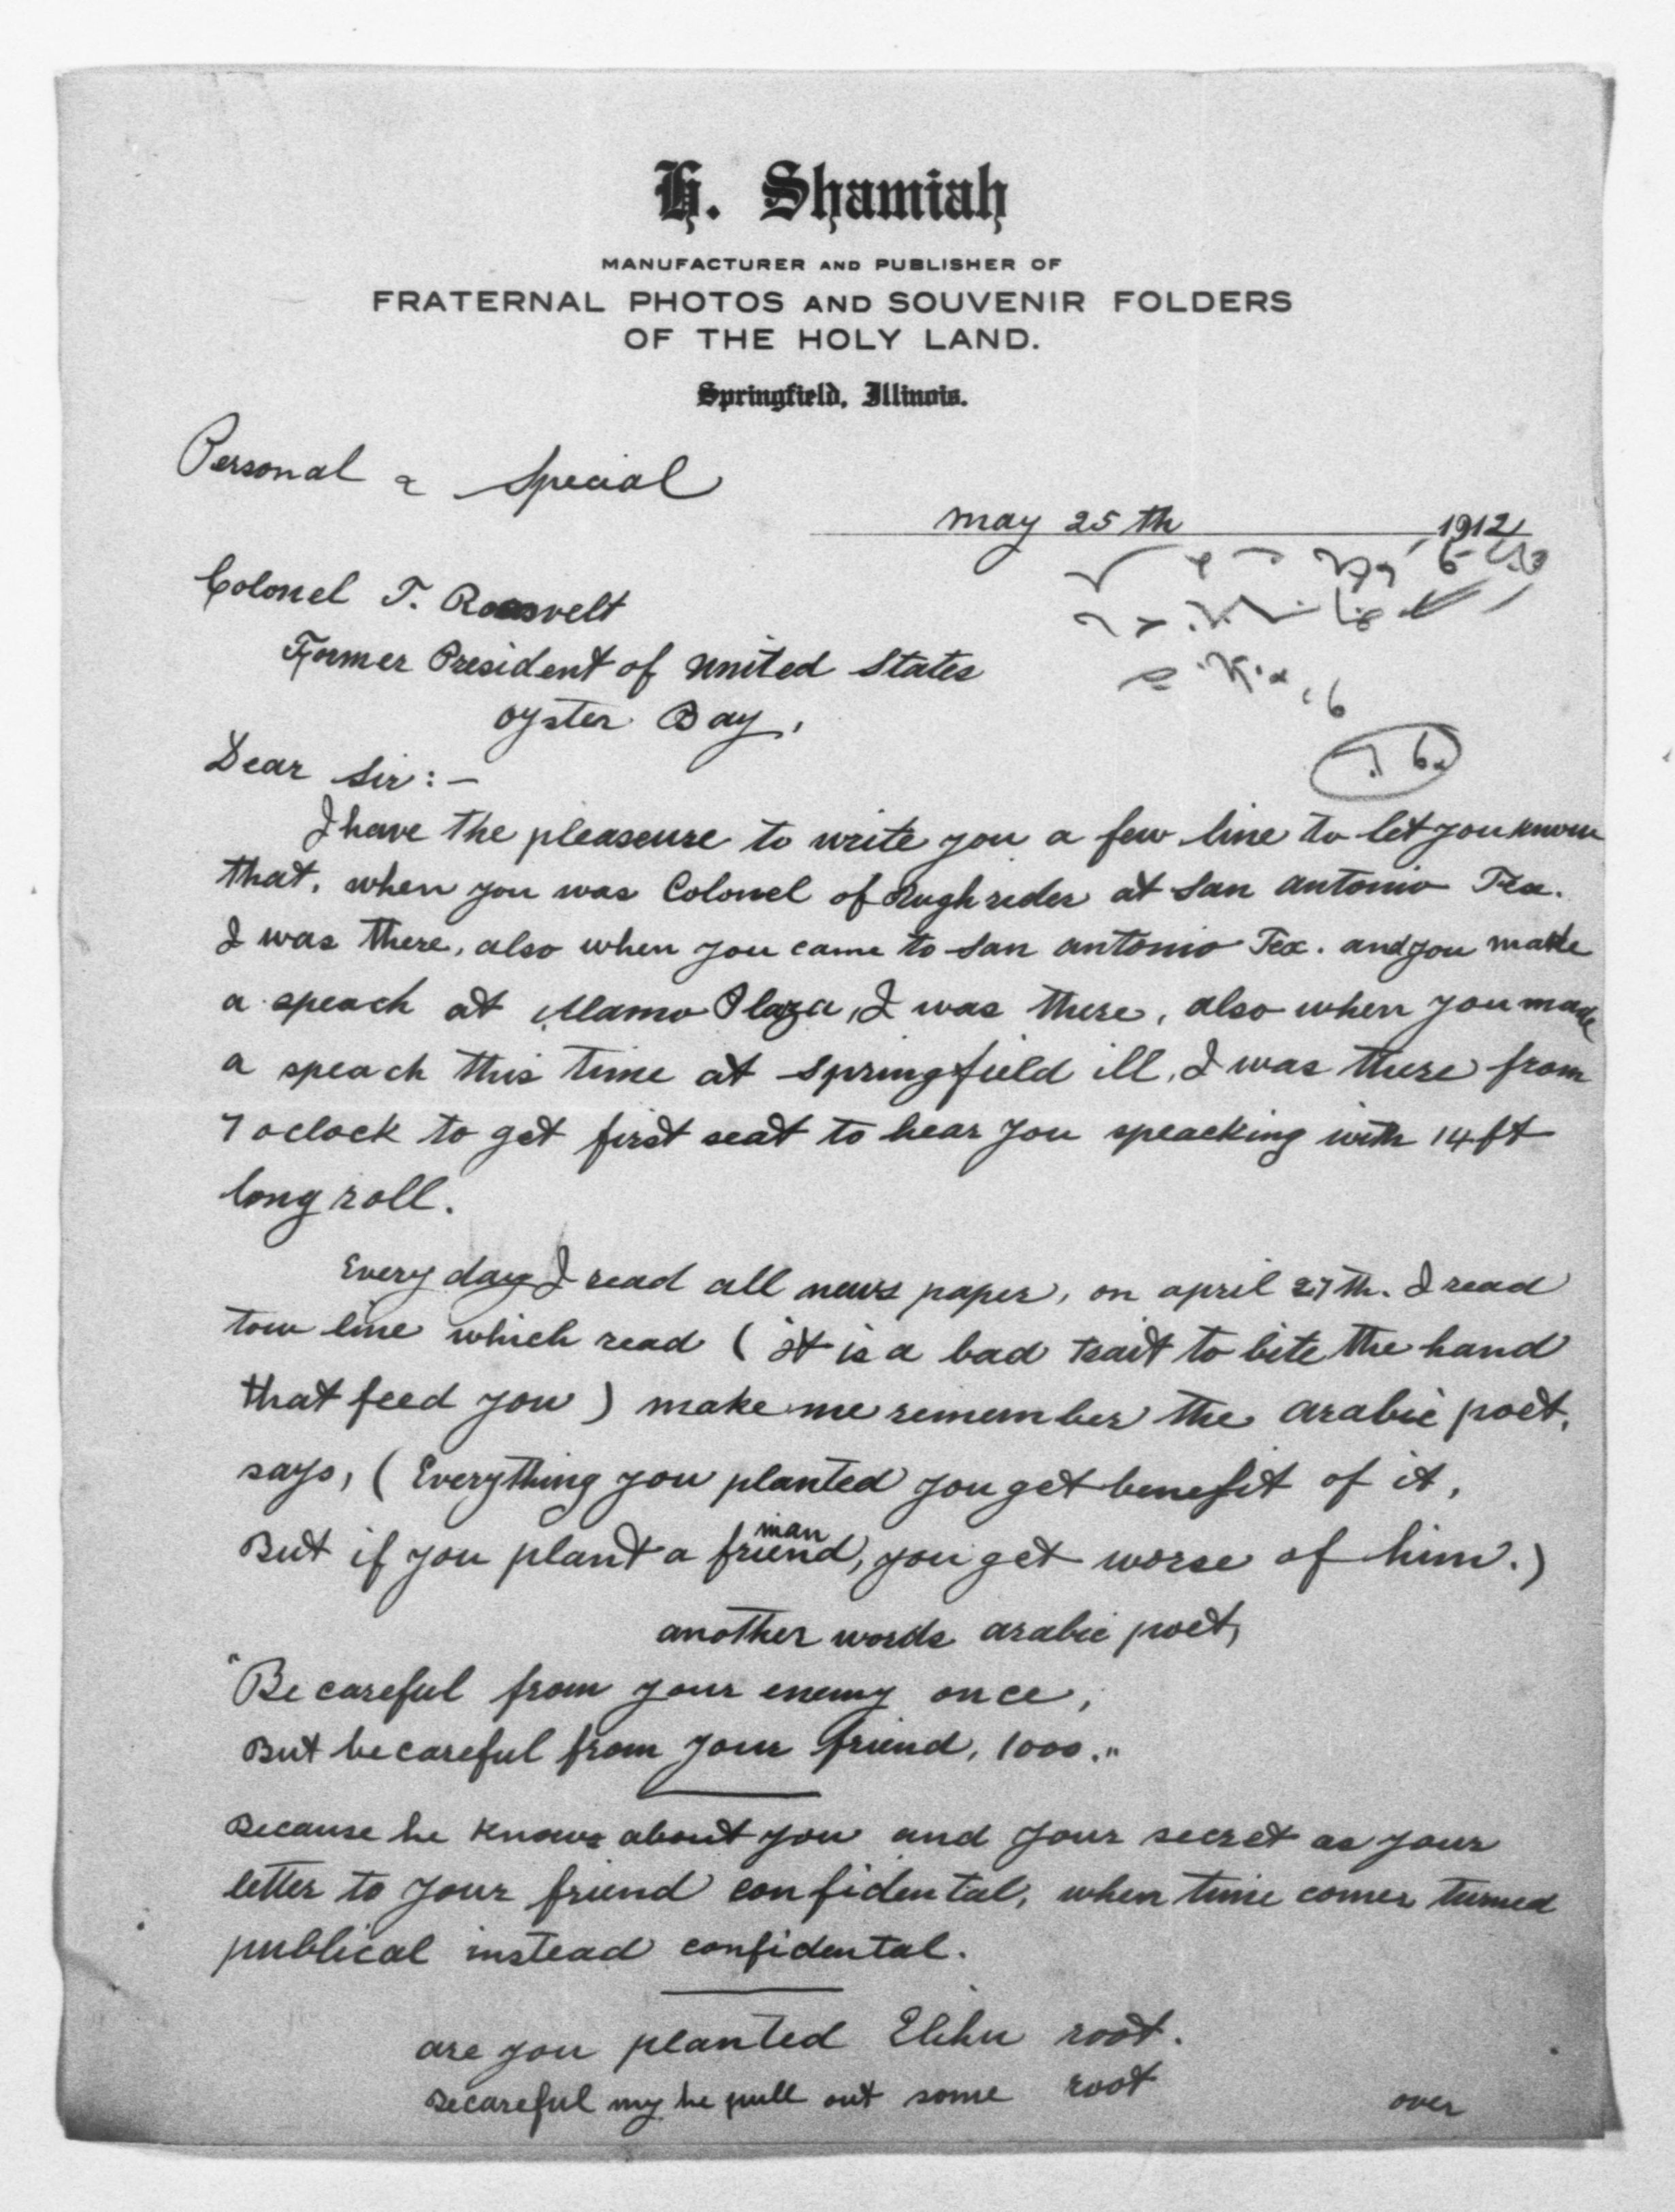 H. Shamiah
MANUFACTURER AND PUBLISHER OF
FRATERNAL PHOTOS AND SOUVENIR FOLDERS
OF THE HOLY LAND.
Springfield, Illinois.
Personal & Special
may 25th 1912
Colonel T. Roosvelt
Former President of United States
Oyster Bay,
Dear Sir:-
I have the pleaseure to write you a few line to let you know
that, when you was Colonel of Rugh rider at San Antonio Tex.
I was there, also when you came to San Antonio Tex. and you made
a speach at Alamo Plaza, I was there, also when you made
a speach this time at Springfield ill, I was there from
7 oclock to get first seat to hear you speacking with 14 ft
long roll.
Every day I read all news paper, on april 27th. I read
tow line which read (it is a bad trait to bite the hand
that feed you) make me remember the arabic poet,
says, (Everything you planted you get benefit of it,
man
But if you plant a friend, you get worse of him.)
another words arabic poet,
"Be careful from your enemy once,
But be careful from your friend, 1000."
Because he knows about you and your secret as your
letter to your friend confidental, when time comes turned
publical instead confidental.
are you planted Elihu root.
Becareful my he pull out some root
over